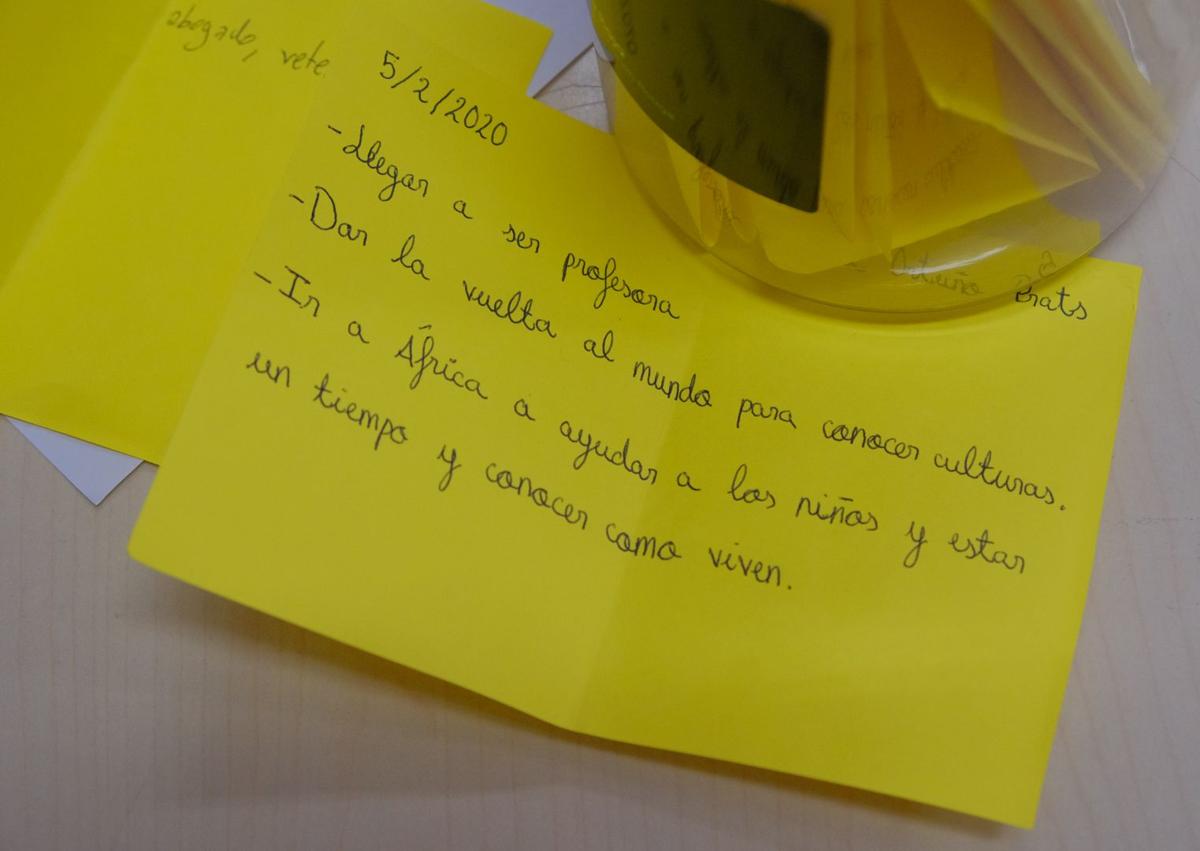 abogado, vete
5/2/2020
Prats
-Llegar a ser profesora
-Dar la vuelta al mundo para conocer culturas.
-Ir a África a ayudar a los niños y estar
un tiempo y conocer como viven.